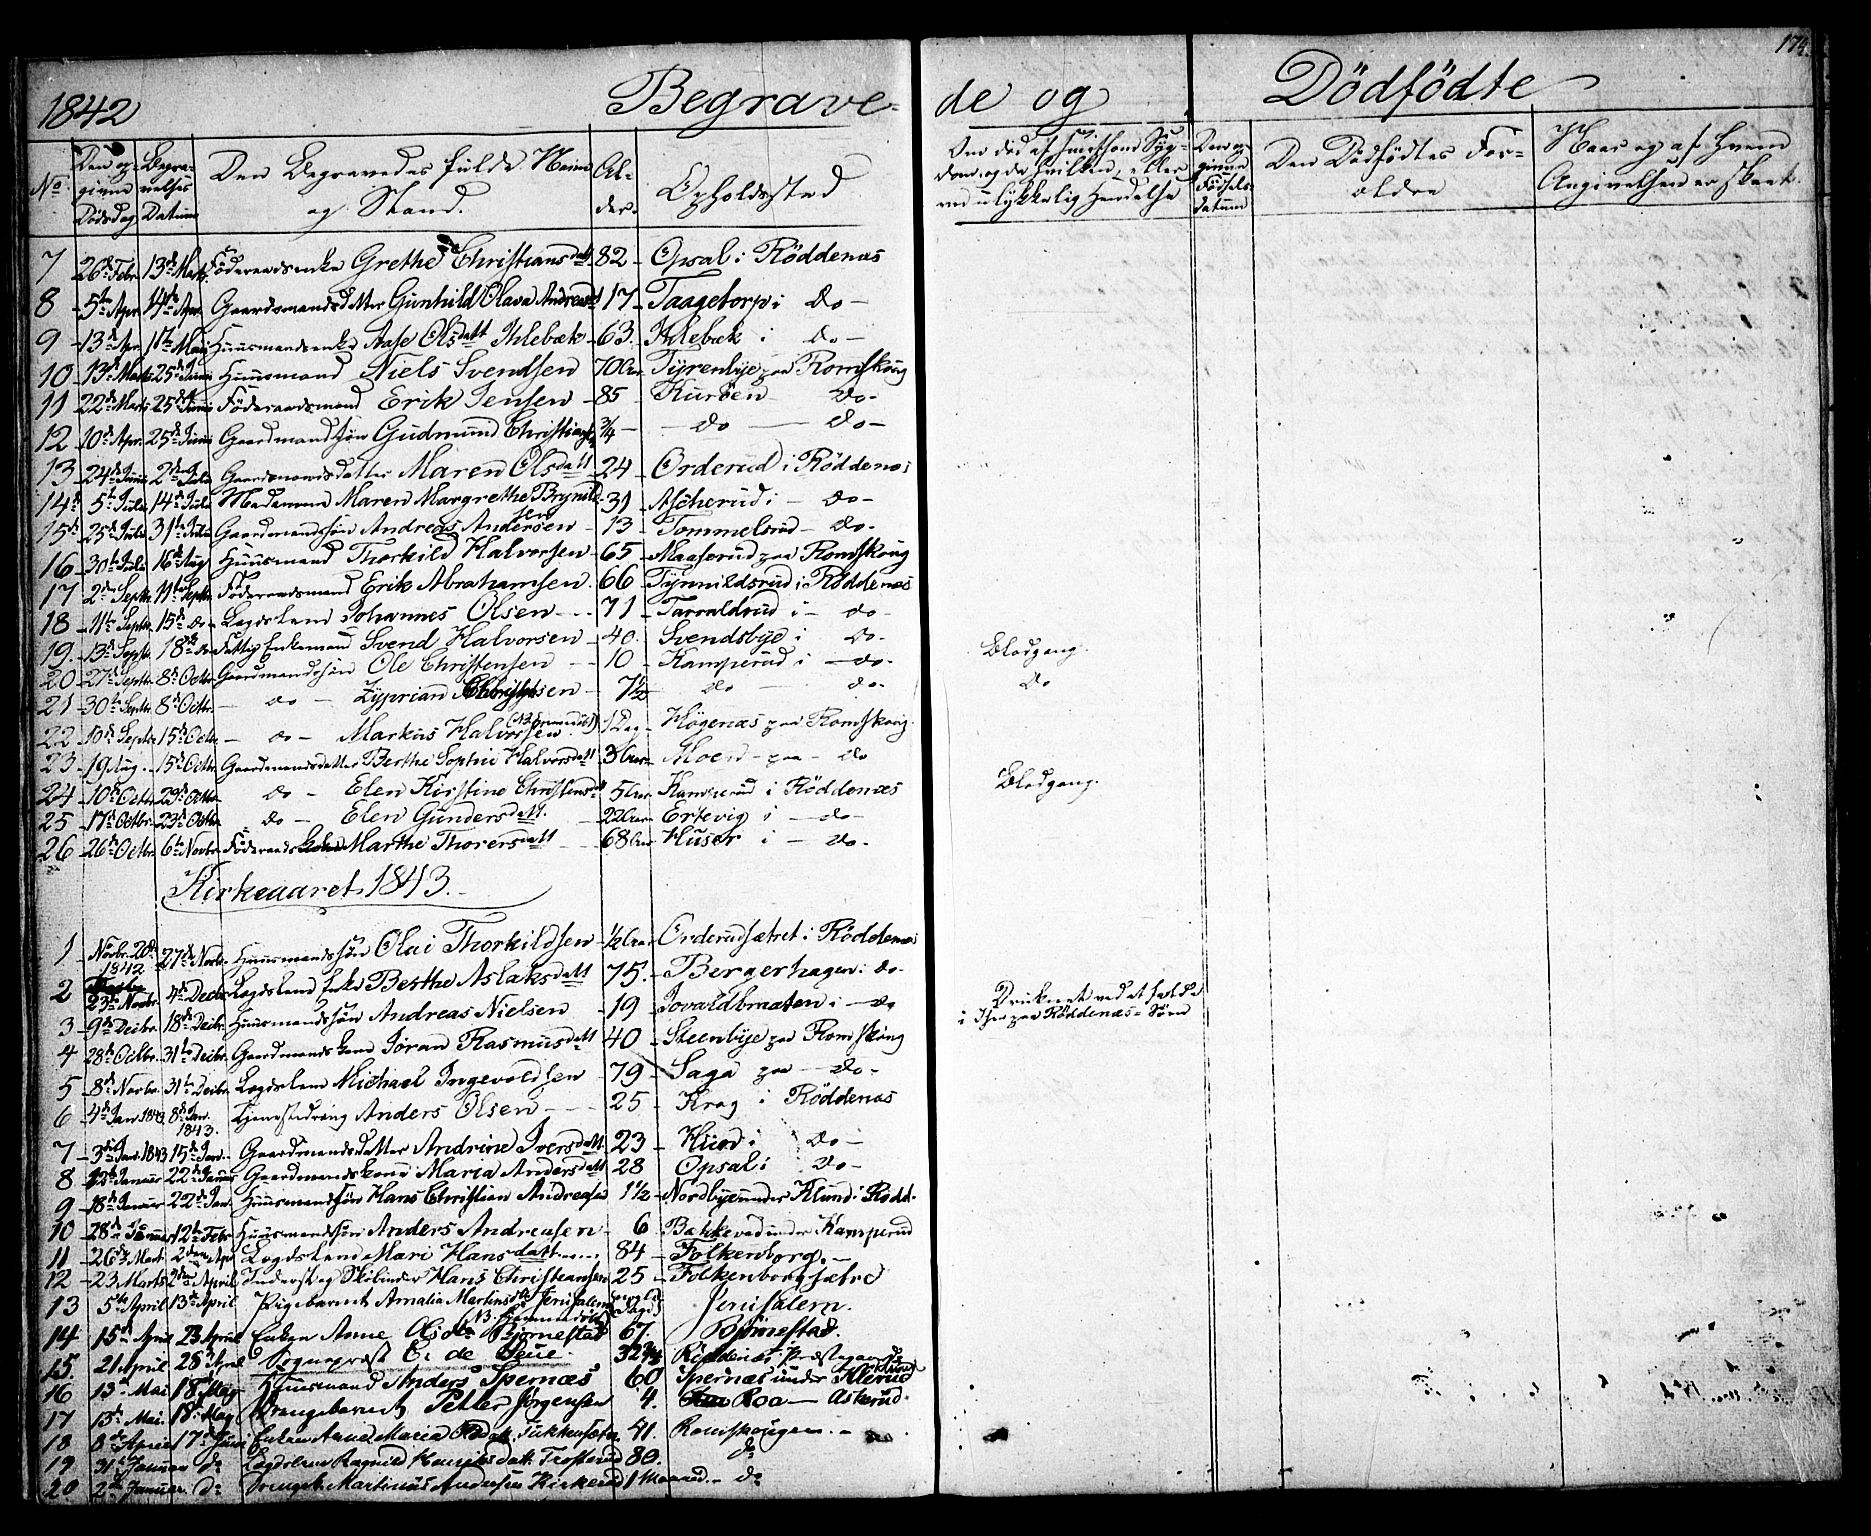 174.
1842 Begrave- de og Dödfödte
No Den og- givne Dödsdag Begra- velses Datum Den Begravedes fulde Navn og Stand. Al- der. Opholdssted Om död af smitsom Syg- dom, og da hvilken, eller ved ulykkelig Hændelse Den og- givne Födsels- datum Den Dödfödtes For- ældre Naar og af hvem Angivelsen er skeet.
7 26de Febr. 13de Marts Föderaadsenke Grethe Christiansdatt 82 - Opsal i Röddenæs
8 - 5te Apr. 14te Apr. Gaardmandsdatter Gunhild Olava Andreasd 17 - Taagetorp i do -
9 - 13de Apr. 17te Mai Huusmandsenke Aase Olsdatt Ihlebæk - 63. Ihlebæk i do -
10 - 13de Marts 25de Juni Huusmand Niels Svendsen 70 Aar Tyrenbye paa Romskoug
11 22de Marts 25de Juni Föderaadsmand Erik Jensen - 85 - Kuröen do -
12 - 10de Apr. 25de Juni Gaardmandssön Gudmund Christians. 3/4 - do - do -
13 - 24de Juni 2den Julii Gaardmandsdatter Maren Olsdatt 24 - Orderud i Röddenæs
14 5te Julii 14de Julii Madamme Maren Margrethe Brynild- sen 31 - Ascherud i - do -
15 25de Julii 31te Julii Gaardmandssön Andreas Andersen - 13 - Tommelsrud - do -
16 - 30te Julii 16de Aug Huusmand Thorkild Halvorsen - 65 - Maaserud paa Romskoug
17 2den Septbr. 11te Septbr Föderaadsmand Erik Abrahamsen. 66 - Tynnildsrud i Röddenæs
18 - 11te Septbr. 15de do - Lægdslem Johannes Olsen - - - 71 - Tarraldrud i - do -
19. 13de Septbr. 18de do Fattig Enkemand Svend Halvorsen - 40. Svendsbye i do - Blodgang.
20 - 27de Septbr 8de Octbr. Gaardmandssön Ole Christensen - - 10 - Kamperud i - do - do
21 - 30te Septbr. 8de Octbr. - do - Zyprian Christensen - 7 1/2 - do - do -
22 - 10de Septbr 15de Octbr - do - Markus Halvorsen (NB hjemmedöbt) - 1 Dag - Högenæs paa Romskoug.
23 - 19 Aug. 15de Octbr. Gaardmandsdatter Berthe Sophie Halvorsdatt 3 Aar Moen - paa - do
24 - 10de Octbr 29de Octbr do - Elen Kirstine Christensd 5 Aar Kamperud i Röddenæs Blodgang.
25 - 17de Octbr. 23de Octbr do - Elen Gundersdatt. 22 Aar Ertevig i - do -
26 - 26de Octbr 6te Novbr. Föderaadskone Marthe Thorersdatt - - 68 Aar Huser i - do -
Kirkeaaret 1843. -
1 Novbr. 20de 1842 27de Novbr - Huusmandssön Olai Thorkildsen - 1/2 Aar Orderudsætret i Röddenæs
2 23de Novbr. 4de Decbr Lægdslem Enke Berthe Aslaksdatt 75. - Bergerhagen i do -
3 - 9de Decbr. 18de Decbr. Huusmandssön Andreas Nielsen - 19 - Tovaldbraaten i - do Druknet ved at falde i Isen paa Röddenæs-Söen
4 28de Octbr. 31te Decbr. Gaardmandskone Jöran Rasmusdatt 40 - Steenbye paa Romskoug
5 - 8de Novbr. 31te Decbr. Lægdslem Michael Ingevoldsen - 79 - Saga paa - do -
6 - 4de Jan. 1843 8de Jan. 1843. Tjenestedreng Anders Olsen - - - 25 - Krog i Röddenæs
7 - 3de Jan. 1843 15de Jan. - Gaardmandsdatter Andrine Iversdatt 23 - Huse i do -
8 Januar 22de Januar Gaardmandskone Maria Andersdatt 28 Opsal i do -
9 - 18de Januar 22de Jan. Huusmandssön Hans Christian Andreasen 1 1/2 - Nordbye under Klund i Rödd.
10 - 28de Januar 12te Febr Huusmandssön Anders Andreasen - 6 Bakkeved under Kamperud
11 - 26de Mart. 2den Apr Lægdslem Mari Hansdatt...... 84 - Folkenborg. -
12 - 23 Marts 2den April Inderst og Skibinder Hans Christiansen 25 - Folkenborgsætre
13 5te April 13de April Pigebarnet Amalia Martinsdtr Jerusalem (NB. hjemmedöbt) Jerusalem.
14 15de April 23 April Enken Anne Olsdtr Björnestad 67. Björnestad.
15. 21 April 28de April Sognepræst C. de Seue. 32 Röddenæs Præstegaard
16 13de Mai 18de Mag Huusmand Anders Spernæs 60 Spernæs under Klund
17 13de Mai. 18de Mag Drengebarnet Petter Jørgensen 4. Roa - Askerud
18 8de April 17de Juni Enken Anne Maria Tukkensæter 41. Romskougen. - do
19 31te Januar do Lægdslem Ragnild Hansdatt Trosterud 80. do
20 2den Januar. do Drengeb. Martinus Andersen Kirkerud 1 Maaned. - do